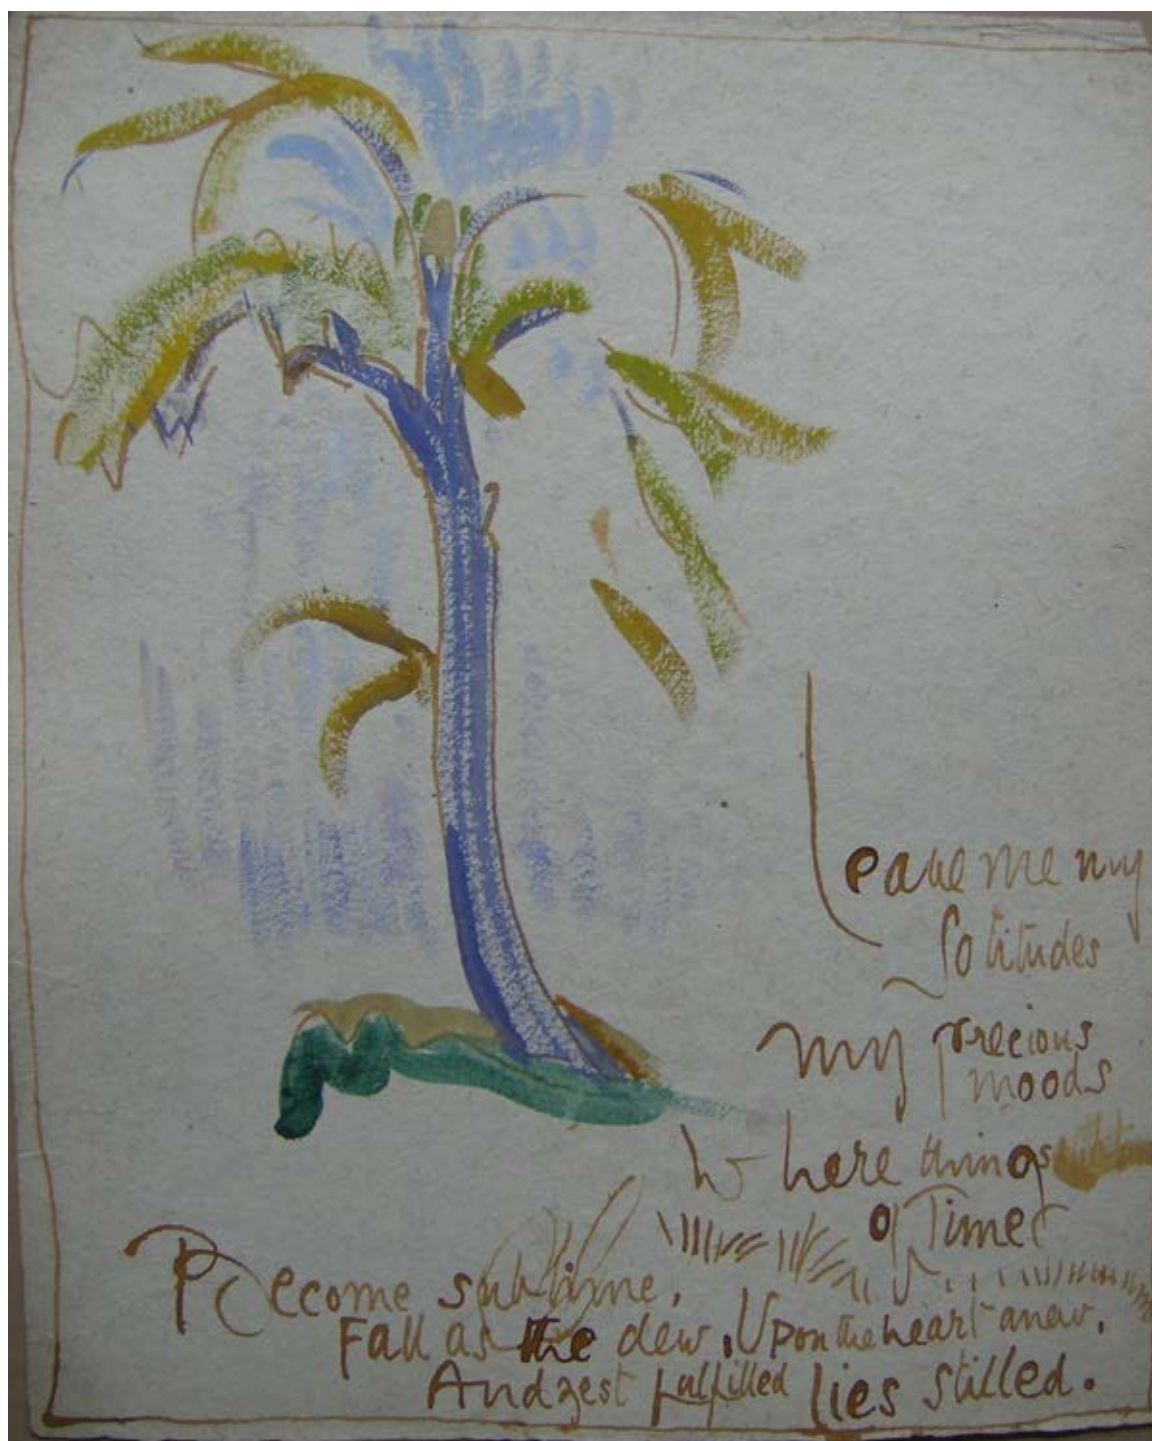 Leave me my
Solitudes
my precious
moods
Where things
of Time
Become sublime,
Fall as the dew, Upon the heart anew,
And zest fulfilled lies stilled.